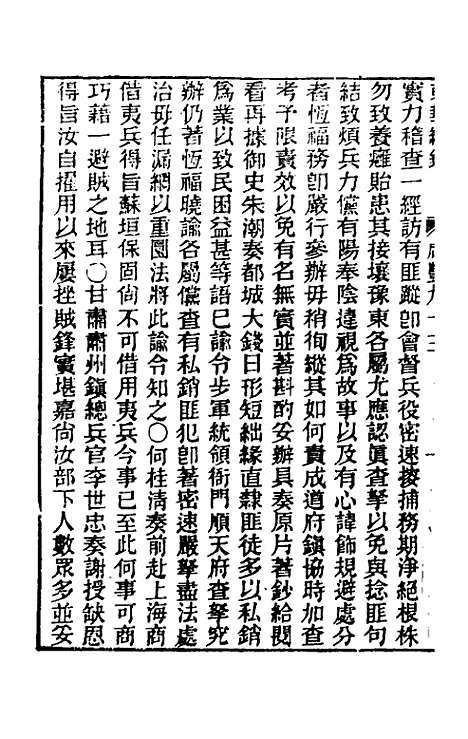 實力稽查一經訪有匪蹤卽會督兵役密速接捕務期淨絕根株
勿致養癰貽患其接壤豫東各屬尤應認眞查拏以免與捻匪句
結致煩兵力儻有陽奉陰違視爲故事以及有心諱飾規避處分
者恆福務卽嚴行參辦毋稍徇縱其如何責成道府鎭協時加查
考予限責效以免有名無實並著斟酌妥辦具奏原片著鈔給閱
看再據御史朱潮奏都城大錢日形短絀緣直隷匪徒多以私銷
爲業以致民困益甚等語已諭令步軍統領衙門順天府查拏究
辦仍著恆福曉諭各屬儻查有私銷匪犯卽著密速嚴拏盡法處
治毋任漏網以重圜法將此諭令知之〇何桂淸奏前赴上海商
借夷兵得旨蘇垣保固尙不可借用夷兵今事已至此何事可商
巧藉一避賊之地耳〇甘肅肅州鎭總兵官李世忠奏謝授缺恩
得旨汝自擢用以來屢挫賊鋒實堪嘉尙汝部下人數眾多並妥